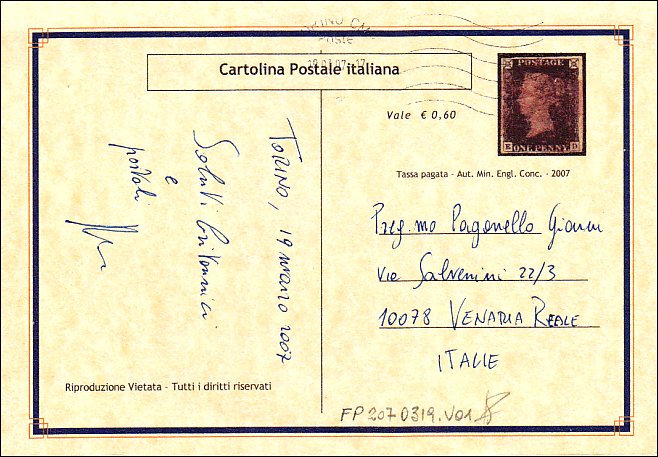 TORINO CM
Poste
Cartolina Postale italiana
POSTAGE
E ONE PENNY D
Vale € 0,60
Tassa pagata - Aut. Min. Engl. Conc. - 2007
TORINO, 19 marzo 2007
Saluti britannici
e
postali
Preg.mo Paganello Gianni
Via Salvemini 22/3
10078 VENARIA REALE
ITALIE
Riproduzione Vietata - Tutti i diritti riservati
FP 207 0319.V01